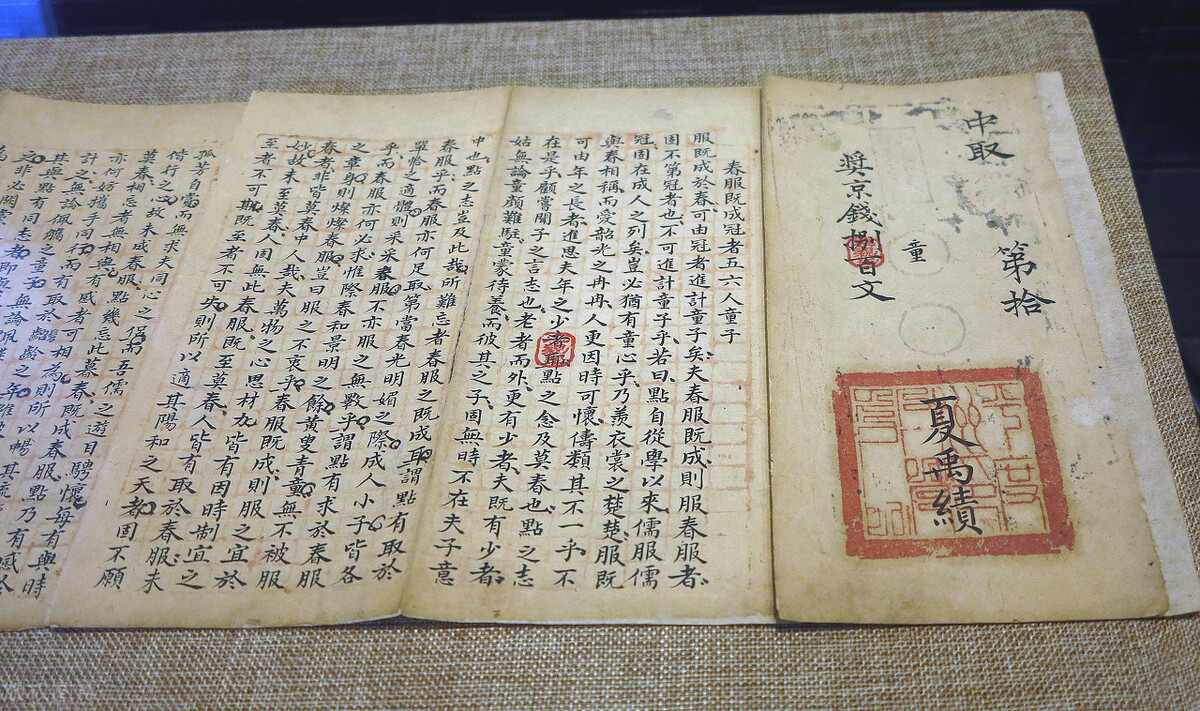 中取
第拾
獎京錢捌百文
童
夏禹績
春服既成冠者五六人童子
服既成於春可由冠者進計童子矣夫春服既成則服春服者
固不第冠者也不可進計童子乎若曰點自從學以來儒服儒
冠固在成人之列矣豈必猶有童心乎乃羨衣裳之楚楚服既
與春相稱而愛韶光之冉冉人更因時可懷儔類其不一乎不
可由年之長者進思夫年之少者耶點之念及莫春也點之志
在是乎顧嘗聞子之言志也老者而外更有少者夫既有少者
姑無論童顏難駐童蒙待養而彼其之子固無時不在夫子意
中也點之志豈及此哉所難忘者春服之既成耳謂點有取於
春服乎而春服亦何足取第當春光明媚之際成人小子皆各
單袷之適體則釆釆春服不亦服之無斁乎謂點有求於春服
乎而春服亦何必求惟際春和景明之餘黃叟青童無不被服
之章身則燦燦春服豈曰服之不衷乎春服既成則服之宜於
春者非皆莫春中人哉夫萬物之心思材力皆有因時制宜之
妙故未至莫春人固無此春服既至莫春人皆有取於春服未
至者不可期既至者不可失則所以適其陽和之天者固不願
孤芳自賞而無求夫同心之侶而吾儒之遊目騁懷每有與時
偕行之心故未成春服點幾忘此暮春既成春服點乃有感於
莫春相忘者無相與有感者可相為則所以暢其
亦何妨攜手同行而有取於
計之無論佩觿之童
其與點有同志者即與
之非必關